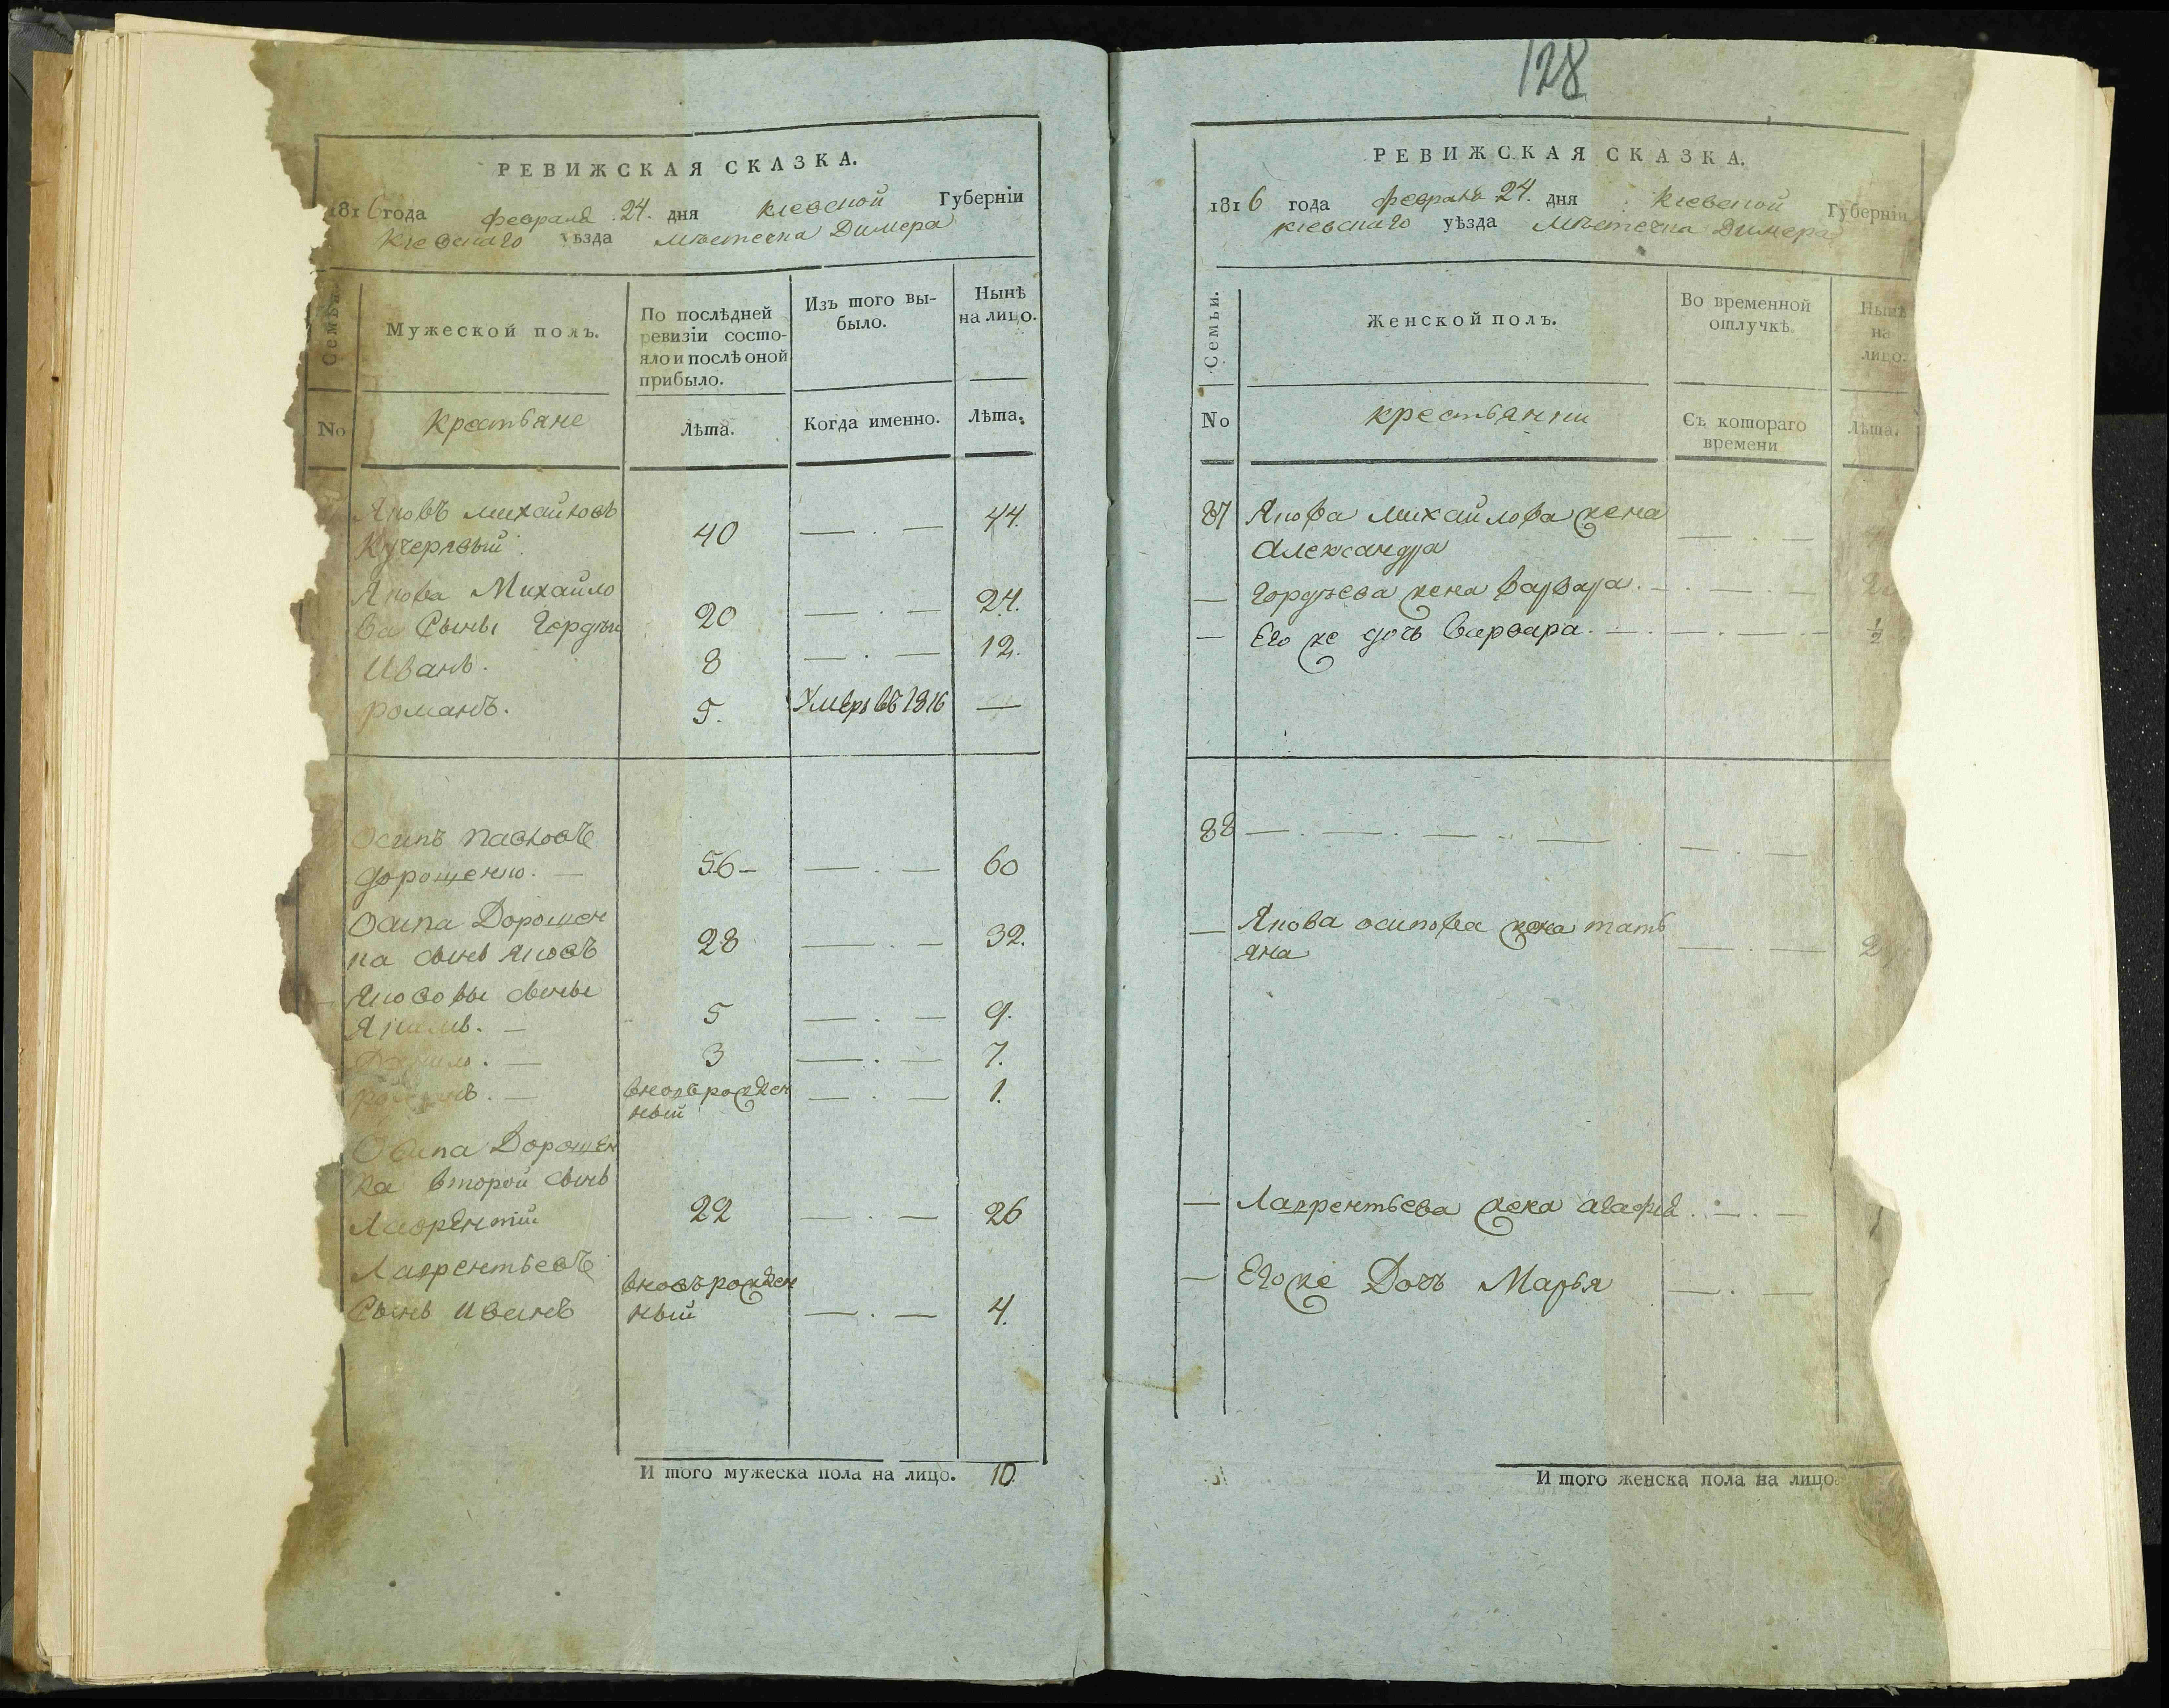 128
РЕВИЖСКАЯ СКАЗКА.
1816 года февраля 24. дня Киевской Губерніи
Киевскаго уѣзда Мѣстечка Димера
Семьи.
Мужеской полъ.
По послѣдней ревизіи состо-
яло и послѣ оной
прибыло.
Изъ того вы-
было.
Нынѣ
на лицо.
No
Крестьяне
Лѣта.
Когда именно.
Лѣта.
Яковъ Михайловъ
Кучерявый 40 — . — 44.
Якова Михайло
ва Сыны Гордѣй 20 — . — 24.
Иванъ. 8 — . — 12.
Романъ. 5. Умеръ въ 1816 —
Осипъ Павловъ
Дорошенко. — 56 — — . — 60
Осипа Дорошен
ка сынъ Яковъ 28 — . — 32.
Якововы сыны
Якимъ. — 5 — . — 9.
— 3 — . — 7.
Романъ. — вновьрожден
ный — . — 1.
Осипа Дорошен
ка второй сынъ
Лаврентій 22 — . — 26
Лаврентьевъ
Сынъ Иванъ вновьрожден
ный — . — 4.
И того мужеска пола на лицо. 10
РЕВИЖСКАЯ СКАЗКА.
1816 года февраля 24. дня Киевской Губерніи
Киевскаго уѣзда Мѣстечка Димера
Семьи.
Женской полъ.
Во временной
отлучкѣ.
Нынѣ
на
лицо.
No
крестьянки
Съ котораго
времени
Лѣта.
87 Якова Михайлова жена
Александра — . —
— Гордѣева жена Варвара. — . — . —
— Его же дочь Варвара. — . — . — . — 1/2
88 — . — . — . — . — . —
— Якова осипова жена тать
яна — . —
— Лаврентьева жена агафия . — . —
— Егоже Дочь Марья — . —
И того женска пола на лицо